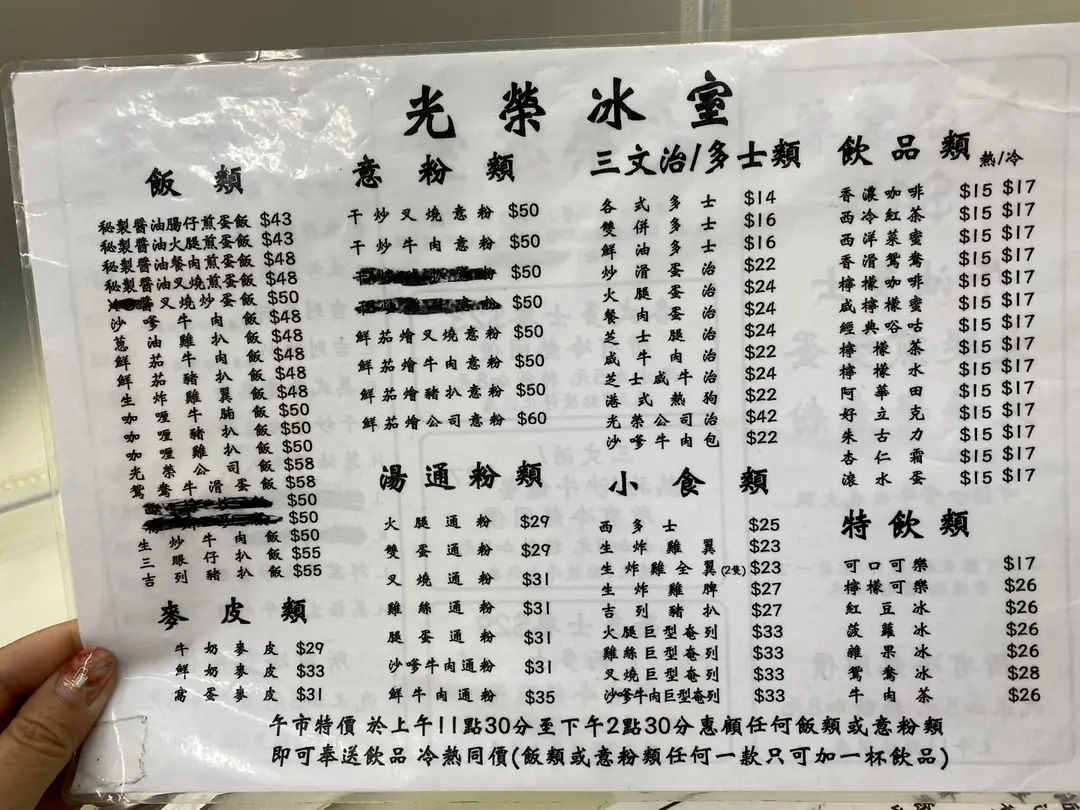 光榮冰室
飯類
秘製醬油腸仔煎蛋飯 $43
秘製醬油火腿煎蛋飯 $43
秘製醬油餐肉煎蛋飯 $48
秘製醬油叉燒煎蛋飯 $48
醬叉燒炒蛋飯 $50
沙嗲牛肉飯 $48
蔥油雞扒飯 $48
鮮茄雞扒飯 $48
鮮茄豬扒飯 $48
生炸雞翼飯 $48
咖喱牛腩飯 $50
咖喱豬扒飯 $50
咖喱雞扒飯 $50
光榮公司飯 $58
鴛鴦牛滑蛋飯 $58
$50
$50
生炒牛肉飯 $50
三眼仔扒飯 $55
吉列豬扒飯 $55
麥皮類
牛奶麥皮 $29
鮮奶麥皮 $33
窩蛋麥皮 $31
意粉類
干炒叉燒意粉 $50
干炒牛肉意粉 $50
$50
$50
鮮茄燴叉燒意粉 $50
鮮茄燴牛肉意粉 $50
鮮茄燴豬扒意粉 $50
鮮茄燴公司意粉 $60
湯通粉類
火腿通粉 $29
雙蛋通粉 $29
叉燒通粉 $31
雞絲通粉 $31
腿蛋通粉 $31
沙嗲牛肉通粉 $31
鮮牛肉通粉 $35
三文治/多士類
各式多士 $14
雙併多士 $16
鮮油多士 $16
炒滑蛋治 $22
火腿蛋治 $24
餐肉蛋治 $24
芝士腿治 $24
咸牛肉治 $22
芝士咸牛治 $24
港式熱狗 $22
光榮公司治 $42
沙嗲牛肉包 $22
小食類
西多士 $25
生炸雞翼 $23
生炸雞全翼(2隻) $23
生炸雞脾 $27
吉列豬扒 $27
火腿巨型奄列 $33
雞絲巨型奄列 $33
叉燒巨型奄列 $33
沙嗲牛肉巨型奄列 $33
飲品類 熱/冷
香濃咖啡 $15 $17
西冷紅茶 $15 $17
西洋菜蜜 $15 $17
香滑鴛鴦 $15 $17
檸檬咖啡 $15 $17
咸檸檬蜜 $15 $17
經典唂咕 $15 $17
檸檬茶 $15 $17
檸檬水 $15 $17
阿華田 $15 $17
好立克 $15 $17
朱古力 $15 $17
杏仁霜 $15 $17
滾水蛋 $15 $17
特飲類
可口可樂 $17
檸檬可樂 $26
紅豆冰 $26
菠蘿冰 $26
雜果冰 $26
鴛鴦冰 $28
牛肉茶 $26
午市特價 於上午11點30分至下午2點30分惠顧任何飯類或意粉類
即可奉送飲品 冷熱同價(飯類或意粉類任何一款只可加一杯飲品)